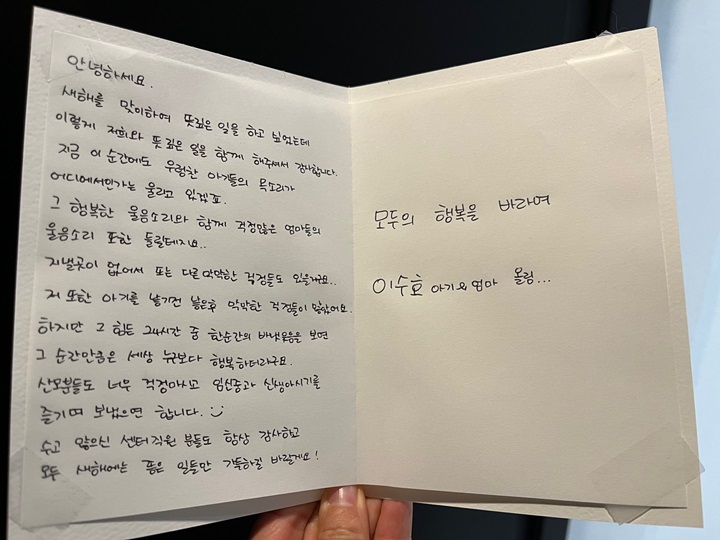 안녕하세요.
새해를 맞이하여 뜻깊은 일을 하고 싶었는데
이렇게 저희와 뜻 깊은 일을 함께 해주셔서 감사합니다.
지금 이 순간에도 우렁찬 아기들의 목소리가
어디에서인가는 울리고 있겠죠.
그 행복한 울음소리와 함께 걱정많은 엄마들의
울음소리 또한 들릴테지요..
지낼곳이 없어서 또는 다른 막막한 걱정들도 있을거구요..
저 또한 아기를 낳기전 낳은후 막막한 걱정들이 많았어요.
하지만 그 힘든 24시간 중 한순간의 배냇웃음을 보면
그 순간만큼은 세상 누구보다 행복하더라구요.
산모분들도 너무 걱정마시고 임신중과 신생아시기를
즐기며 보냈으면 합니다. :)
수고 많으신 센터직원 분들도 항상 감사하고
모두 새해에는 좋은 일들만 가득하길 바랄게요!
모두의 행복을 바라며
이수호 아기와 엄마 올림...